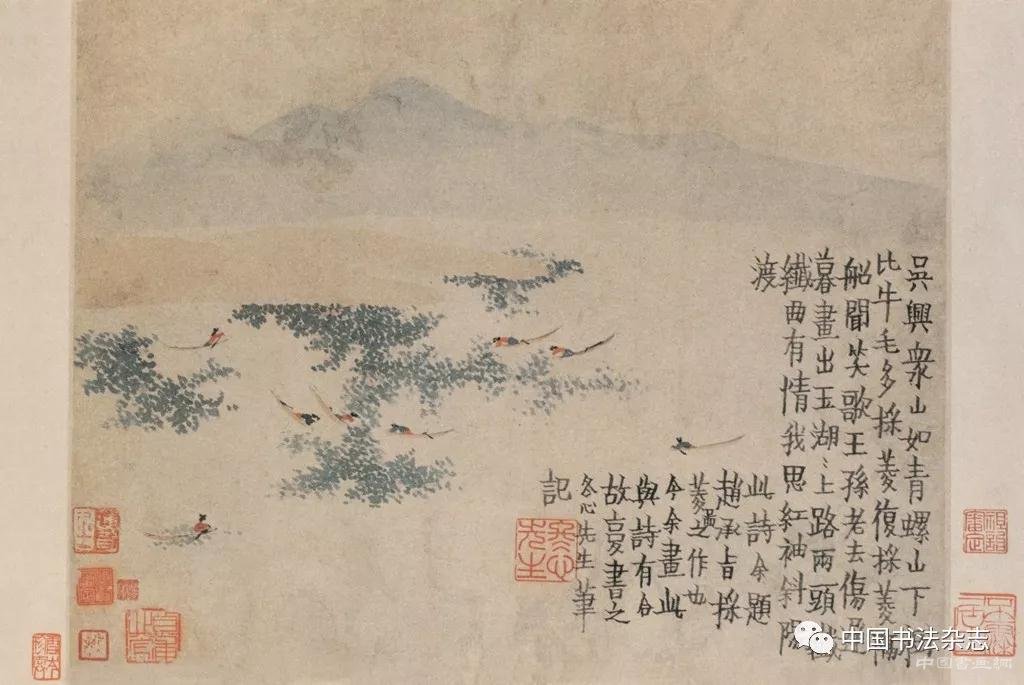 吳興衆山如青螺山下
比牛毛多採菱復採菱隔
船聞笑歌王孫老去傷遲
暮畫出玉湖〻上路兩頭纖
纖曲有情我思紅袖斜陽
渡
此詩余題
趙承旨採
菱圖之作也
今余畫此
與詩有合
故書之
冬心先生筆
記
冬心先生
中国书法杂志
中國書画網